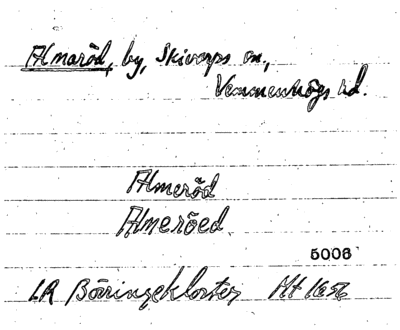 Almaröd, by, Skivarps sn.,
Vemmenhögs hd.
Almeröd
Almeröed
5006
LR Böringekloster Mt 1656